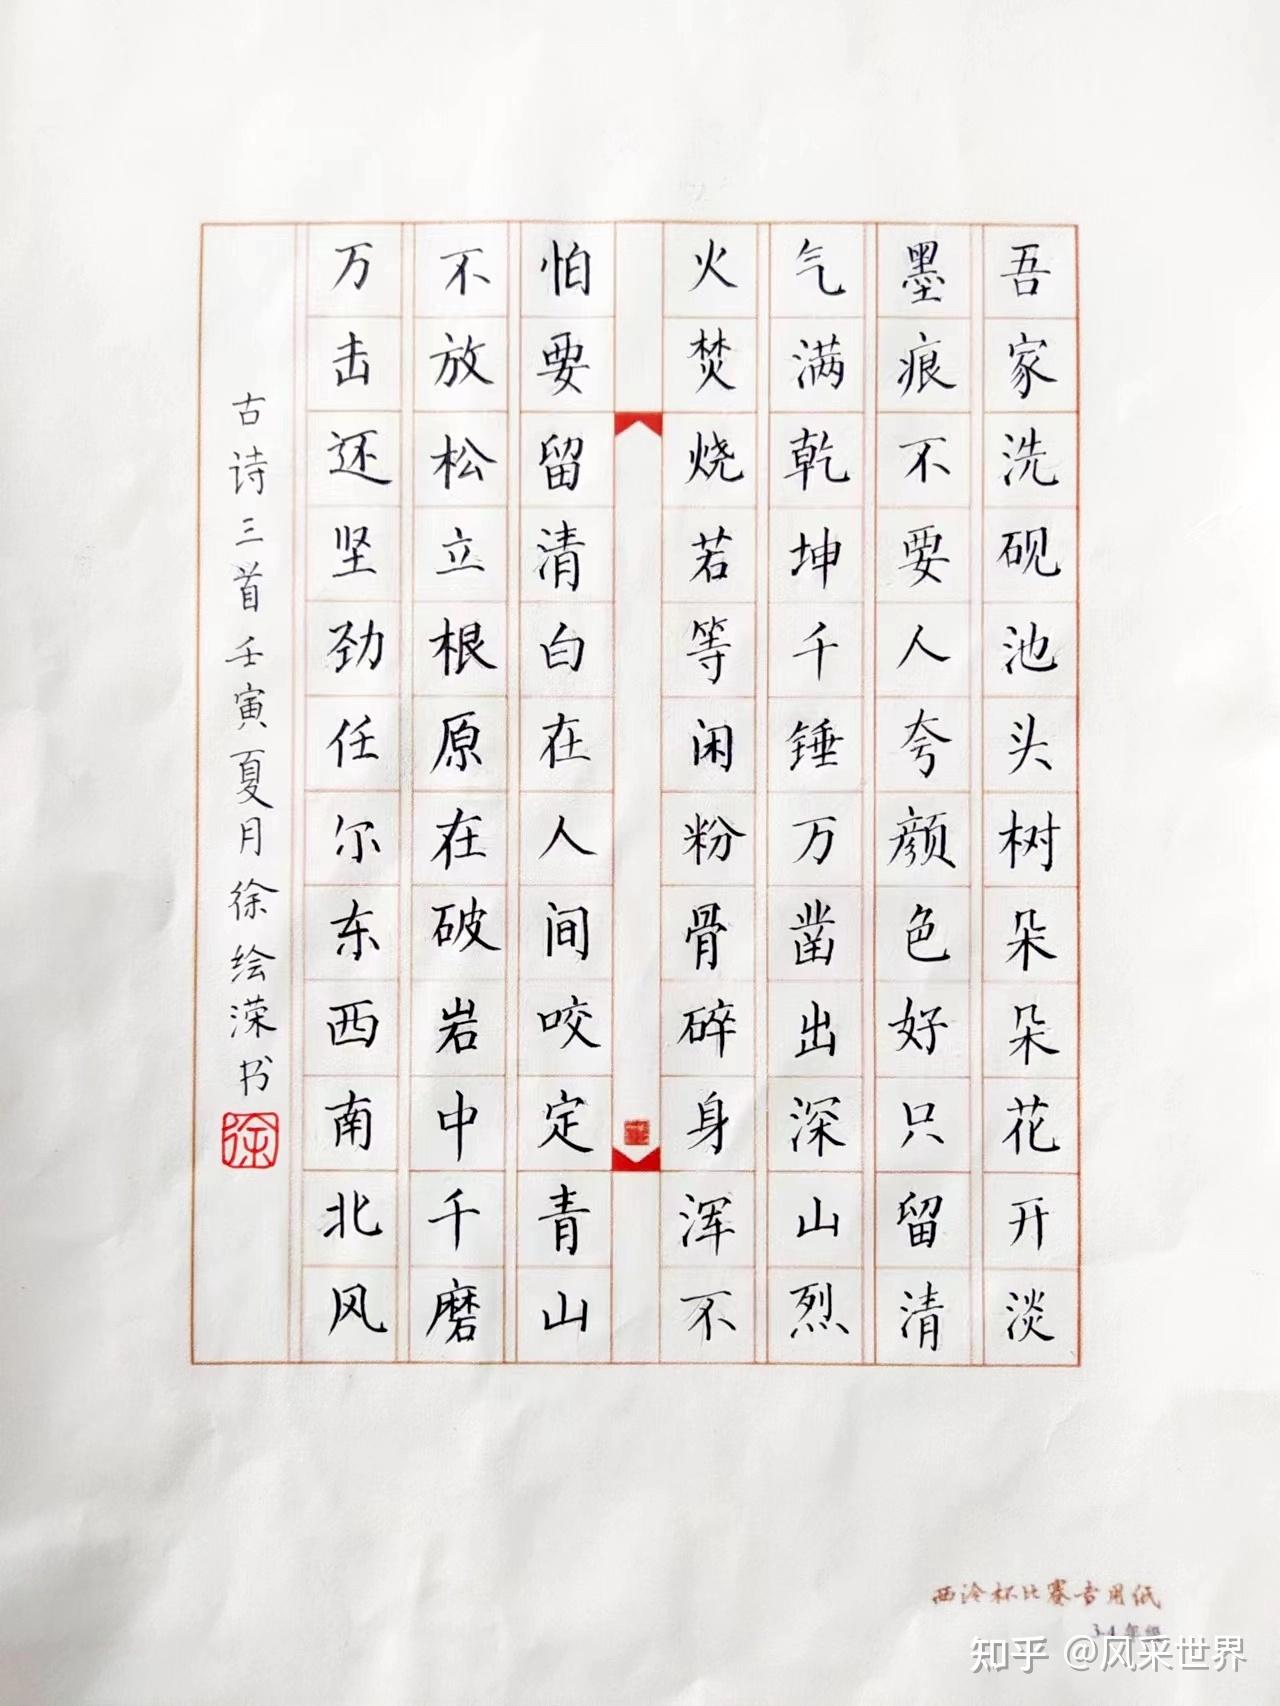 吾家洗砚池头树朵朵花开淡
墨痕不要人夸颜色好只留清
气满乾坤千锤万凿出深山烈
火焚烧若等闲粉骨碎身浑不
怕要留清白在人间咬定青山
不放松立根原在破岩中千磨
万击还坚劲任尔东西南北风
古诗三首壬寅夏月徐绘溁书
徐
西泠杯比赛专用纸
3-4年级
知乎 @风采世界